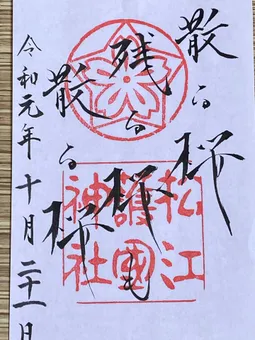 散る桜
残る桜も
散る桜
松江
護國
神社
令和元年十月二十一日